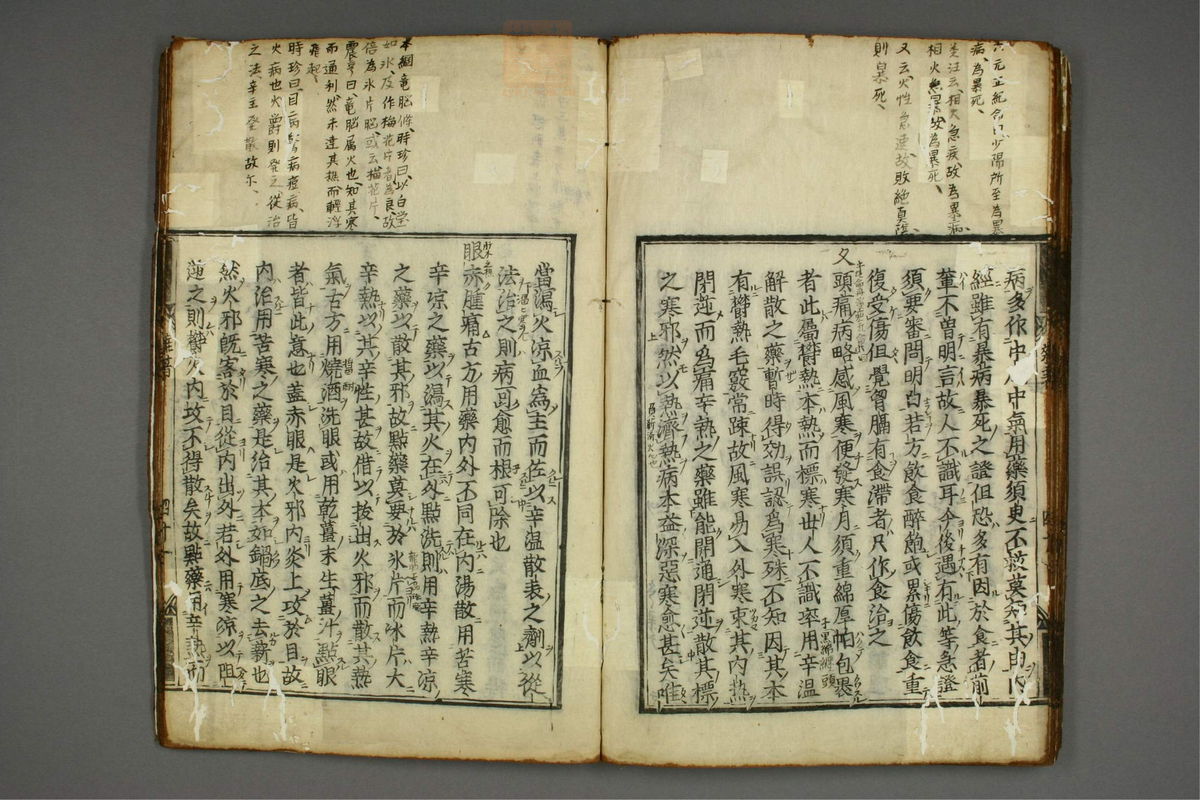 六元正紀
少陽所至為暴
病為暴死
王注云相火急疾故為暴病
相火急暴故為暴死
又云火性急速故敗絶真陰
則暴死
病多作中
中氣用藥須臾不救莫知其由
經雖有暴病暴死之證但恐多有因於食者前
輩不曽明言故人不識耳今後遇有此等急證
須要審問明白若方飲食醉飽或累傷飲食重
復受傷但覺胷膈有食滯者只作食治之
又
頭痛病略感風寒便發寒月須重綿厚帕包裹
者此屬欝熱本熱而標寒世人不識率用辛温
解散之藥暫時得効誤認為寒殊不知因其本
有欝熱毛竅常踈故風寒易入外寒束其内熱
閉逆而為痛辛熱之藥雖能開通閉逆散其標
之寒邪然以熱濟熱病本益深惡寒愈甚矣唯
本綱竜腦條時珍曰以白瑩
如氷及作梅花片者為良故
俗為氷片腦或云梅花片
震亨曰竜腦属火也知其寒
而通利然未達其熱而輕浮
飛起
時珍曰目病
病痘病皆
火病也火鬱則發之從治
之法辛主發散故尓
當瀉火凉血為主而佐以辛温散表之劑以從
法治之則病可愈而根可除也
眼赤腫痛古方用藥内外不同在内湯散用苦寒
辛凉之藥以瀉其火在外點洗則用辛熱辛凉
之藥以散其邪故點藥莫要於氷片而氷片大
辛熱以其辛性甚故借以拔出火邪而散其熱
氣古方用燒酒洗眼或用乾薑末生薑汁點眼
者皆此意也蓋赤眼是火邪内炎上攻於目故
内治用苦寒之藥是治其本如鍋底之去薪也
然火邪既客於目從内出外若外用寒凉以阻
逆之則欝火内攻不得散矣故點藥用辛熱而